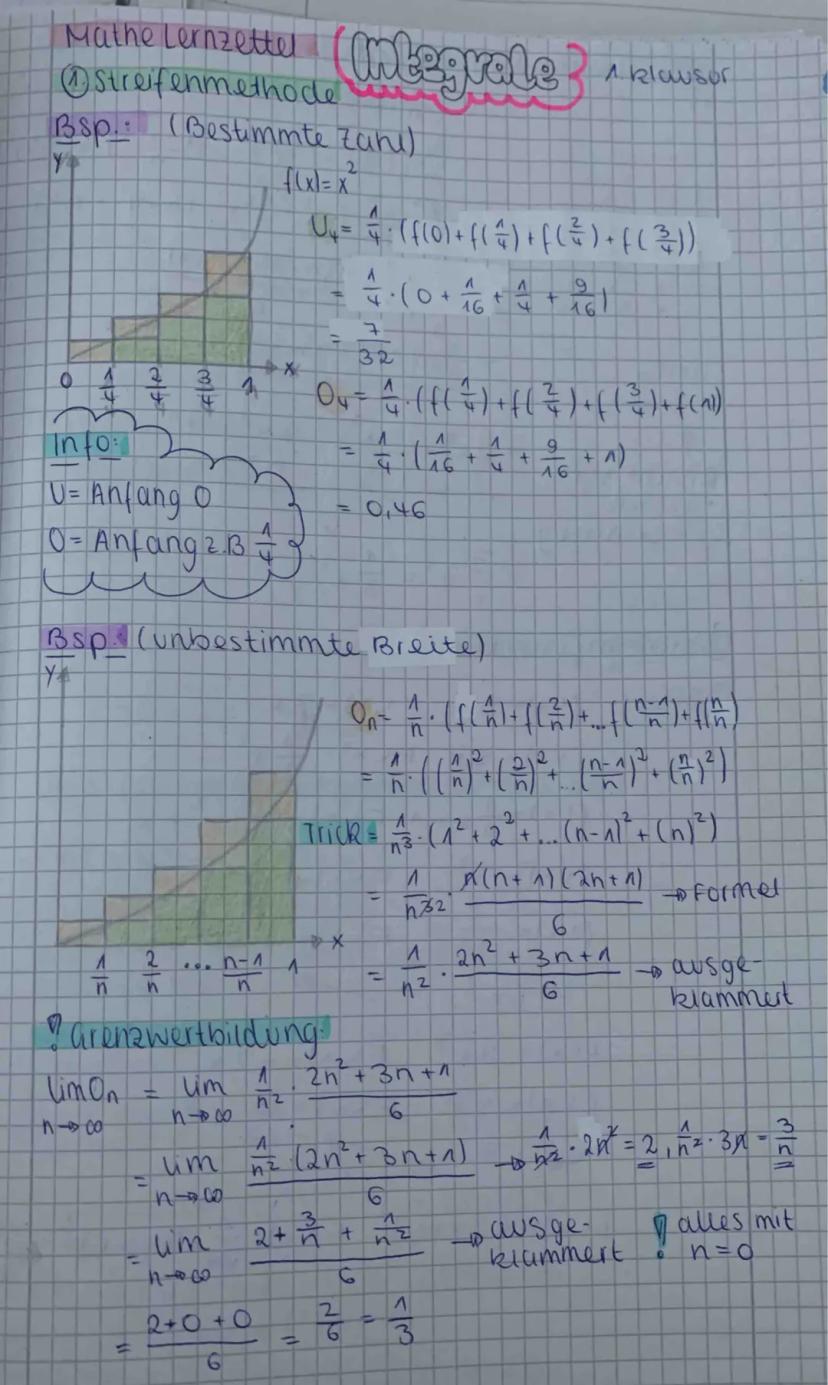 Mathe Lernzettel (Integrale} 1. Klausur
① Streifenmethode
Bsp.: (Bestimmte Zahl)
y
f(x)=x²
U₄= 1/4 · (f(0)+f(1/4)+f(2/4)+f(3/4))
= 1/4 · (0 + 1/16 + 1/4 + 9/16)
= 7/32
x
0 1/4 2/4 3/4 1
O₄= 1/4 · (f(1/4)+f(2/4)+f(3/4)+f(1))
Info:
= 1/4 · (1/16 + 1/4 + 9/16 + 1)
U= Anfang 0
= 0,46
O= Anfang z.B 1/4
Bsp.: (unbestimmte Breite)
y
Oₙ= 1/n · (f(1/n)+f(2/n)+...f(n-1/n)+f(n/n)
= 1/n · ((1/n)²+(2/n)²+...(n-1/n)²+(n/n)²)
Trick= 1/n³ · (1²+2²+...(n-1)²+(n)²)
= 1/n³2 · n(n+1)(2n+1)/6 → Formel
x
1/n 2/n ... n-1/n 1
= 1/n² · 2n²+3n+1/6 → ausge-
klammert
! Grenzwertbildung:
lim Oₙ = lim 1/n² · 2n²+3n+1/6
n→∞ n→∞
= lim 1/n² · (2n²+3n+1)/6 → 1/n² · 2n² = 2, 1/n² · 3n = 3/n
n→∞
= lim 2+3/n+1/n²/6 → ausge-
klammert
n→∞
! alles mit
n=0
= 2+0+0/6 = 2/6 = 1/3